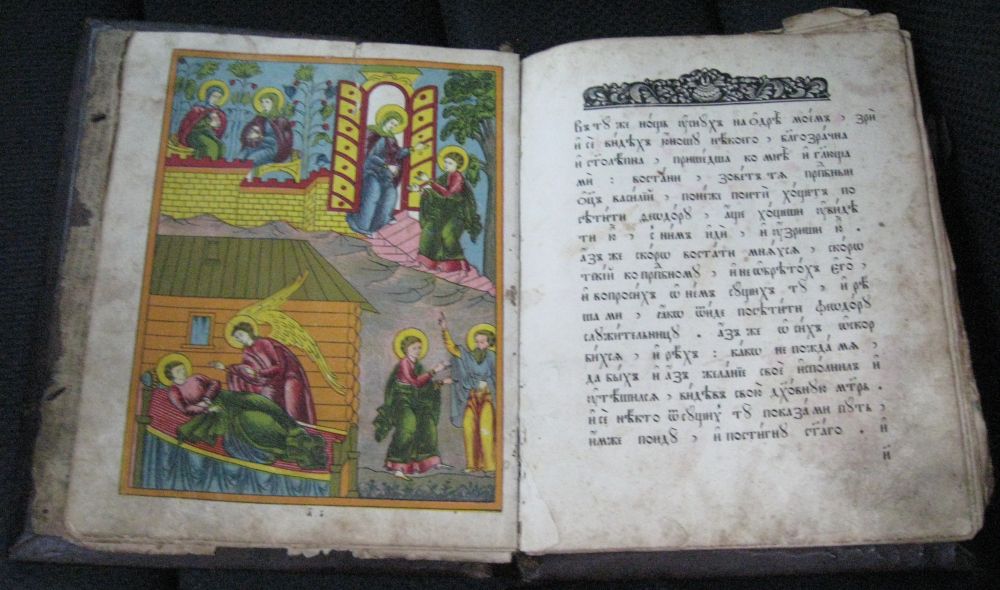 Въ ту́ же но́щь ᲂу҆снꙋ́хъ на ѻ҆дрѣ̀ мое́мъ , зрю̀
и҆ сѐ ви́дѣхъ ю҆́ношꙋ нѣ́коего , благозра́чна
и҆ столѣ́пна , прише́дша ко мнѣ̀ и҆ гл҃юща
мѝ : воста́ни , зове́тъ тѧ̀ прпⷣбный
ѻ҆ц҃ъ васи́лїй , поне́же поитѝ хо́щетъ по
сѣти́ти ѳеѡдо́рꙋ , а҆́ще хо́щеши ᲂу҆ви́дѣ
ти ю҆̀ , с̾ ни́мъ и҆дѝ , и҆ ᲂу҆́зриши ю҆̀ .
а҆́зъ же ско́рѡ воста́ти мнѧ́хсѧ , ско́рѡ
теко́й ко прпⷣбному , и҆ не ѡ҆брѣто́хъ є҆гѡ̀ ,
и҆ вопроси́хъ ѡ҆ не́мъ сꙋ́щихъ тꙋ̀ , и҆ рѣ́
ша ми , ꙗ҆́кѡ ѿи́де посѣти́ти ѳеѡдо́рꙋ
слꙋжи́тельницꙋ . а҆́зъ же ѡ҆ си́хъ ѡ҆скор
би́хсѧ , и҆ рѣ́хъ : ка́кѡ не пожда̀ мѧ̀ ,
да бы́хъ и҆ а҆́зъ жела́нїе своѐ и҆спо́лнилъ и҆
ᲂу҆тѣ́шилсѧ , ви́дѣвъ свою̀ дꙋхо́внꙋю мт҃рь .
и҆ сѐ нѣ́кто ѿ сꙋ́щихъ тꙋ̀ показа́ ми пꙋ́ть ,
и҆́мже поидꙋ̀ , и҆ пости́гнꙋ ст҃а́го . и҆
и҆